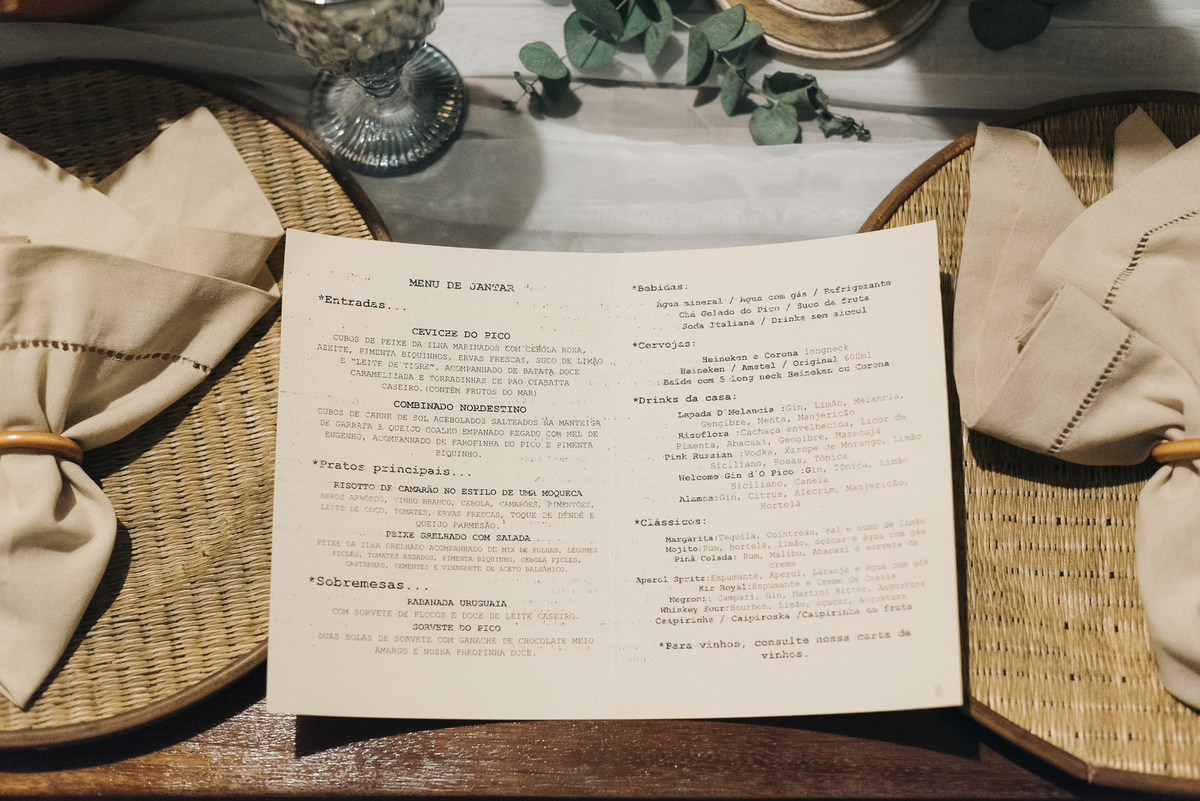 MENU DE JANTAR
*Entradas...
CEVICHE DO PICO
CUBOS DE PEIXE DA ILHA MARINADOS COM CEBOLA ROXA,
AZEITE, PIMENTA BIQUINHOS, ERVAS FRESCAS, SUCO DE LIMÃO
E "LEITE DE TIGRE". ACOMPANHADO DE BATATA DOCE
CARAMELIZADA E TORRADINHAS DE PAO CIABATTA
CASEIRO.(CONTÉM FRUTOS DO MAR)
COMBINADO NORDESTINO
CUBOS DE CARNE DE SOL ACEBOLADOS SALTEADOS NA MANTEIGA
DE GARRAFA E QUEIJO COALHO EMPANADO REGADO COM MEL DE
ENGENHO, ACOMPANHADO DE FAROFINHA DO PICO E PIMENTA
BIQUINHO.
*Pratos principais...
RISOTTO DE CAMARÃO NO ESTILO DE UMA MOQUECA
ARROZ ARBÓREO, VINHO BRANCO, CEBOLA, CAMARÕES, PIMENTÕES,
LEITE DE COCO, TOMATES, ERVAS FRESCAS, TOQUE DE DENDÊ E
QUEIJO PARMESÃO.
PEIXE GRELHADO COM SALADA
PEIXE DA ILHA GRELHADO ACOMPANHADO DE MIX DE FOLHAS, LEGUMES
PICLÉS, TOMATES ASSADOS, PIMENTA BIQUINHO, CEBOLA PICLES,
CASTANHAS, SEMENTES E VINAGRETE DE ACETO BALSÂMICO.
*Sobremesas...
RABANADA URUGUAIA
COM SORVETE DE FLOCOS E DOCE DE LEITE CASEIRO.
SORVETE DO PICO
DUAS BOLAS DE SORVETE COM GANACHE DE CHOCOLATE MEIO
AMARGO E NOSSA FAROFINHA DOCE.
*Bebidas:
Água mineral / Água com gás / Refrigerante
Chá Gelado do Pico / Suco da fruta
Soda Italiana / Drinks sem alcool
*Cervejas:
Heineken e Corona longneck
Heineken / Amstel / Original 600ml
Balde com 5 long neck Heineken ou Corona
*Drinks da casa:
Lapada D'Melancia :Gin, Limão, Melancia,
Gengibre, Menta, Manjericão
Risoflora :Cachaça envelhecida, Licor de
Pimenta, Abacaxi, Gengibre, Maracujá
Pink Russian :Vodka, Xarope de Morango, Limão
Siciliano, Rosas, Tônica
Welcome Gin d'O Pico :Gin, Tônica, Limão
Siciliano, Canela
Alamoa:Gin, Citrus, Alecrim, Manjericão,
Hortelã
*Clássicos:
Margarita:Tequila, Cointreau, sal e sumo de limão
Mojito:Rum, hortelã, limão, açúcar e água com gás
Pinã Colada: Rum, Malibu, Abacaxi e sorvete de
creme
Aperol Spritz:Espumante, Aperol, Laranja e água com gás
Kir Royal:Espumante e Creme de Cassis
Negroni: Campari, Gin, Martini Bitter, Angostura
Whiskey Sour:Bourbon, Limão, açucar, Angostura
Caipirinha / Caipiroska /Caipirinha da fruta
*Para vinhos, consulte nossa carta de
vinhos.